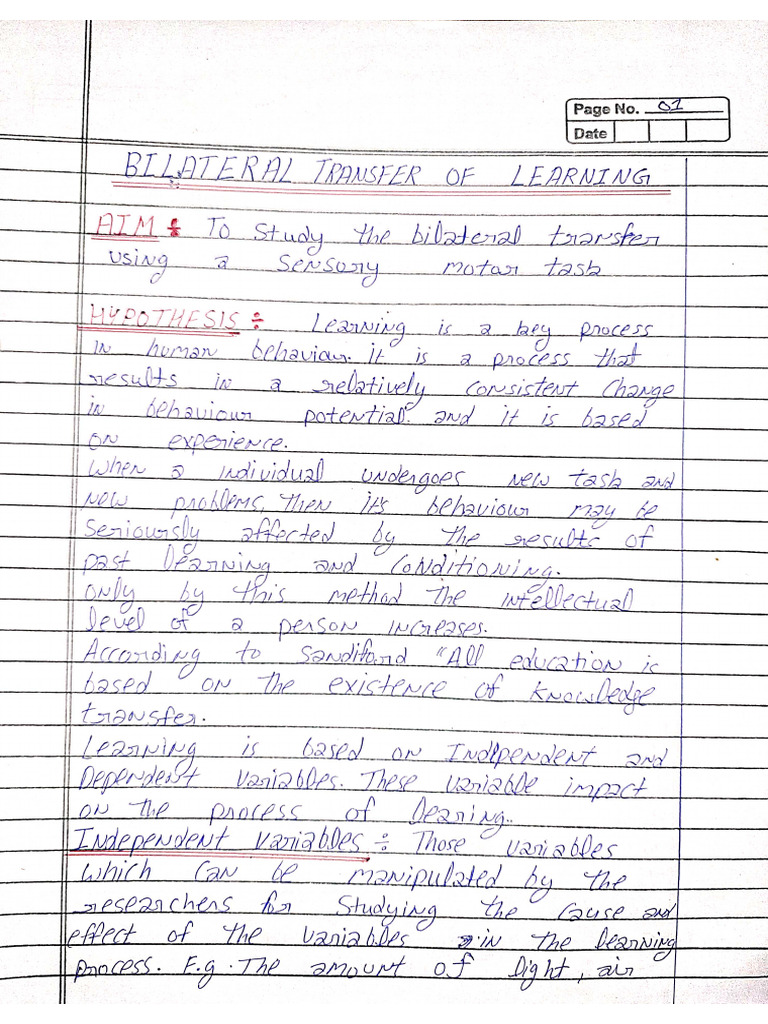 Page No. 01
Date
BILATERAL TRANSFER OF LEARNING
AIM ÷ To study the bilateral transfer
using a sensory motar task
HYPOTHESIS ÷ Learning is a key process
in human behaviour. it is a process that
results in a relatively consistent change
in behaviour potential. and it is based
on experience.
When a individual undergoes new task and
new problems, then it's behaviour may be
serioursly affected by the results of
past learning and conditioning.
only by this method the intellectual
level of a person increases.
According to Sandiford "All education is
based on the existence of knowledge
transfer.
Learning is based on Independent and
Dependent variables. These variable impact
on the process of learing.
Independent variables ÷ Those variables
which can be manipulated by the
researchers for studying the cause and
effect of the variables in the learning
process. E.g. The amount of light, air